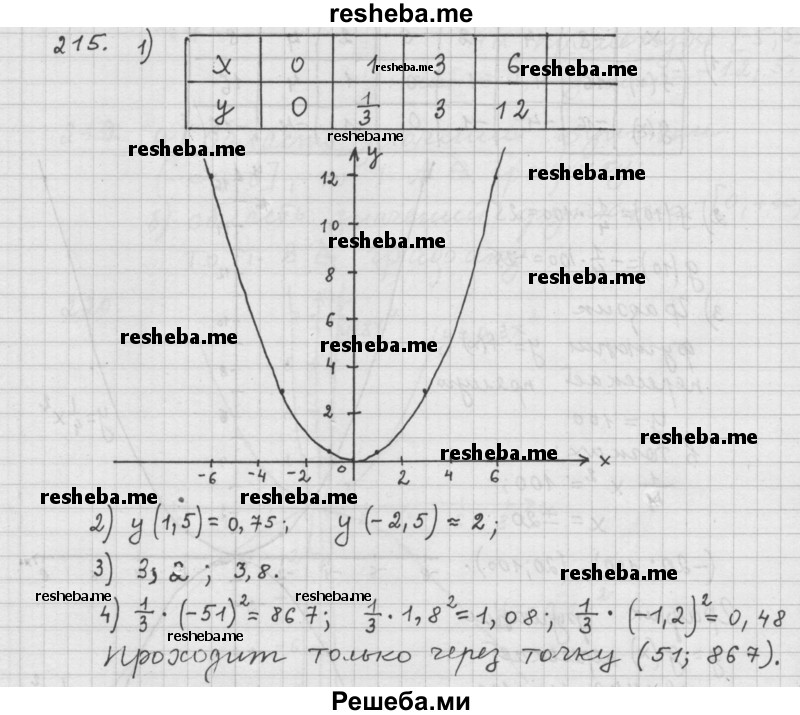 resheba.me
215. 1)
x 0 1 resheba.me 3 6 resheba.me
y 0 1/3 3 12
resheba.me
resheba.me
y
12
resheba.me
10
resheba.me
8
resheba.me
6
resheba.me
resheba.me
4
2
resheba.me
resheba.me
-6 -4 -2 0 2 4 6 x
resheba.me resheba.me
2) y(1,5) = 0,75; y(-2,5) ≈ 2;
3) 3; 2; 3,8.
resheba.me
resheba.me resheba.me
4) 1/3 · (-51)² = 867; 1/3 · 1,8² = 1,08; 1/3 · (-1,2)² = 0,48
resheba.me
Проходит только через точку (51; 867).
Решеба.ми